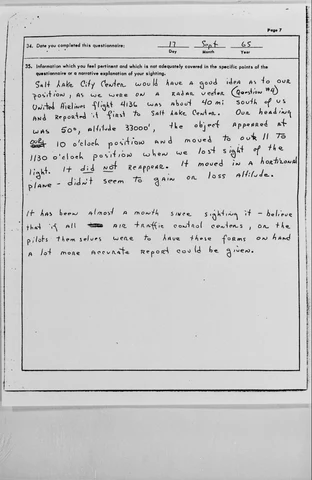 Page 7
34. Date you completed this questionnaire: 17 Sept 65
Day Month Year
35. Information which you feel pertinent and which is not adequately covered in the specific points of the
questionnaire or a narrative explanation of your sighting.
Salt Lake City Center would have a good idea as to our
position, as we were on a radar vector (Question #9)
United Airlines flight 4136 was about 40 mi south of us
and reported it first to Salt Lake Center. Our heading
was 50°, altitude 33000', the object appeared at
our 10 o'clock position and moved to our 11 to
1130 o'clock position when we lost sight of the
light. It did not reappear. It moved in a horizonal
plane - didn't seem to gain or loss altitude.
It has been almost a month since sighting it - believe
that if all air traffic control centers, or the
pilots themselves were to have these forms on hand
a lot more accurate report could be given.